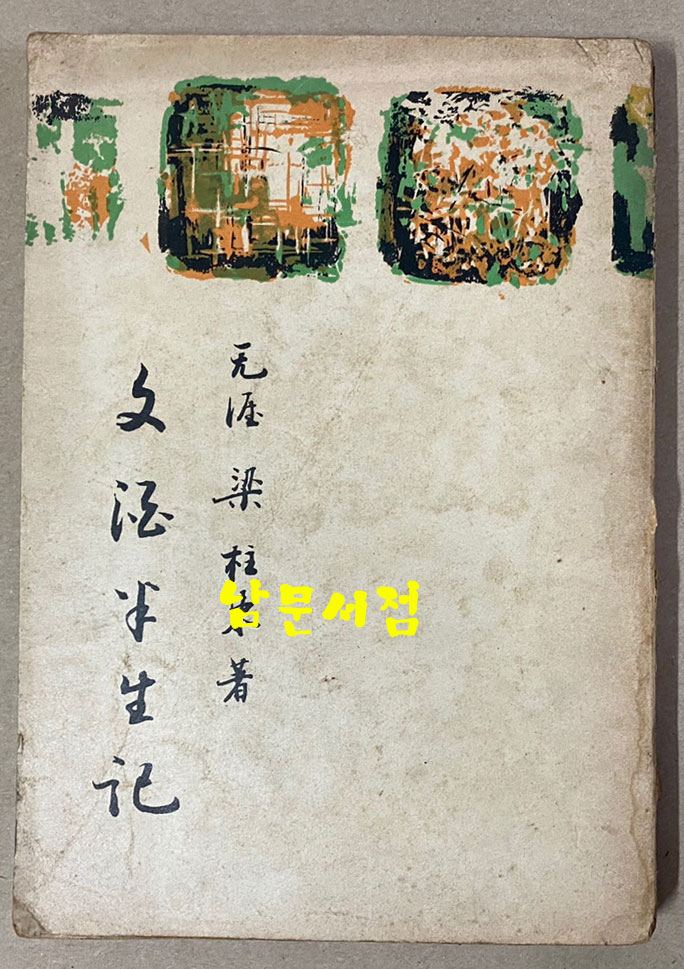 无涯 梁柱東 著
文酒半生記
남문서점